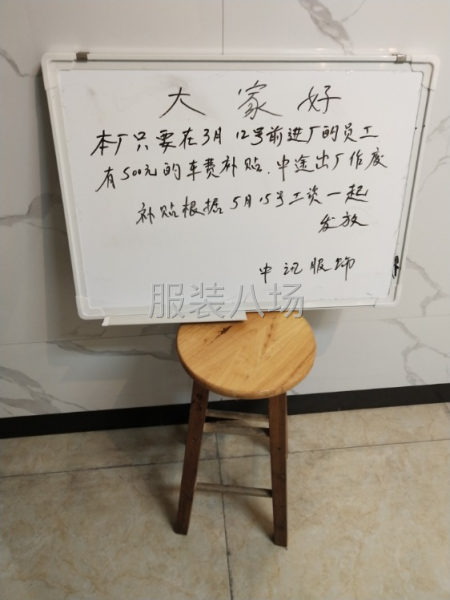 大家好
本厂只要在3月12号前进厂的员工
有500元的车费补贴.中途出厂作废
补贴根据5月15号工资一起
发放
中讯服饰
服装八场